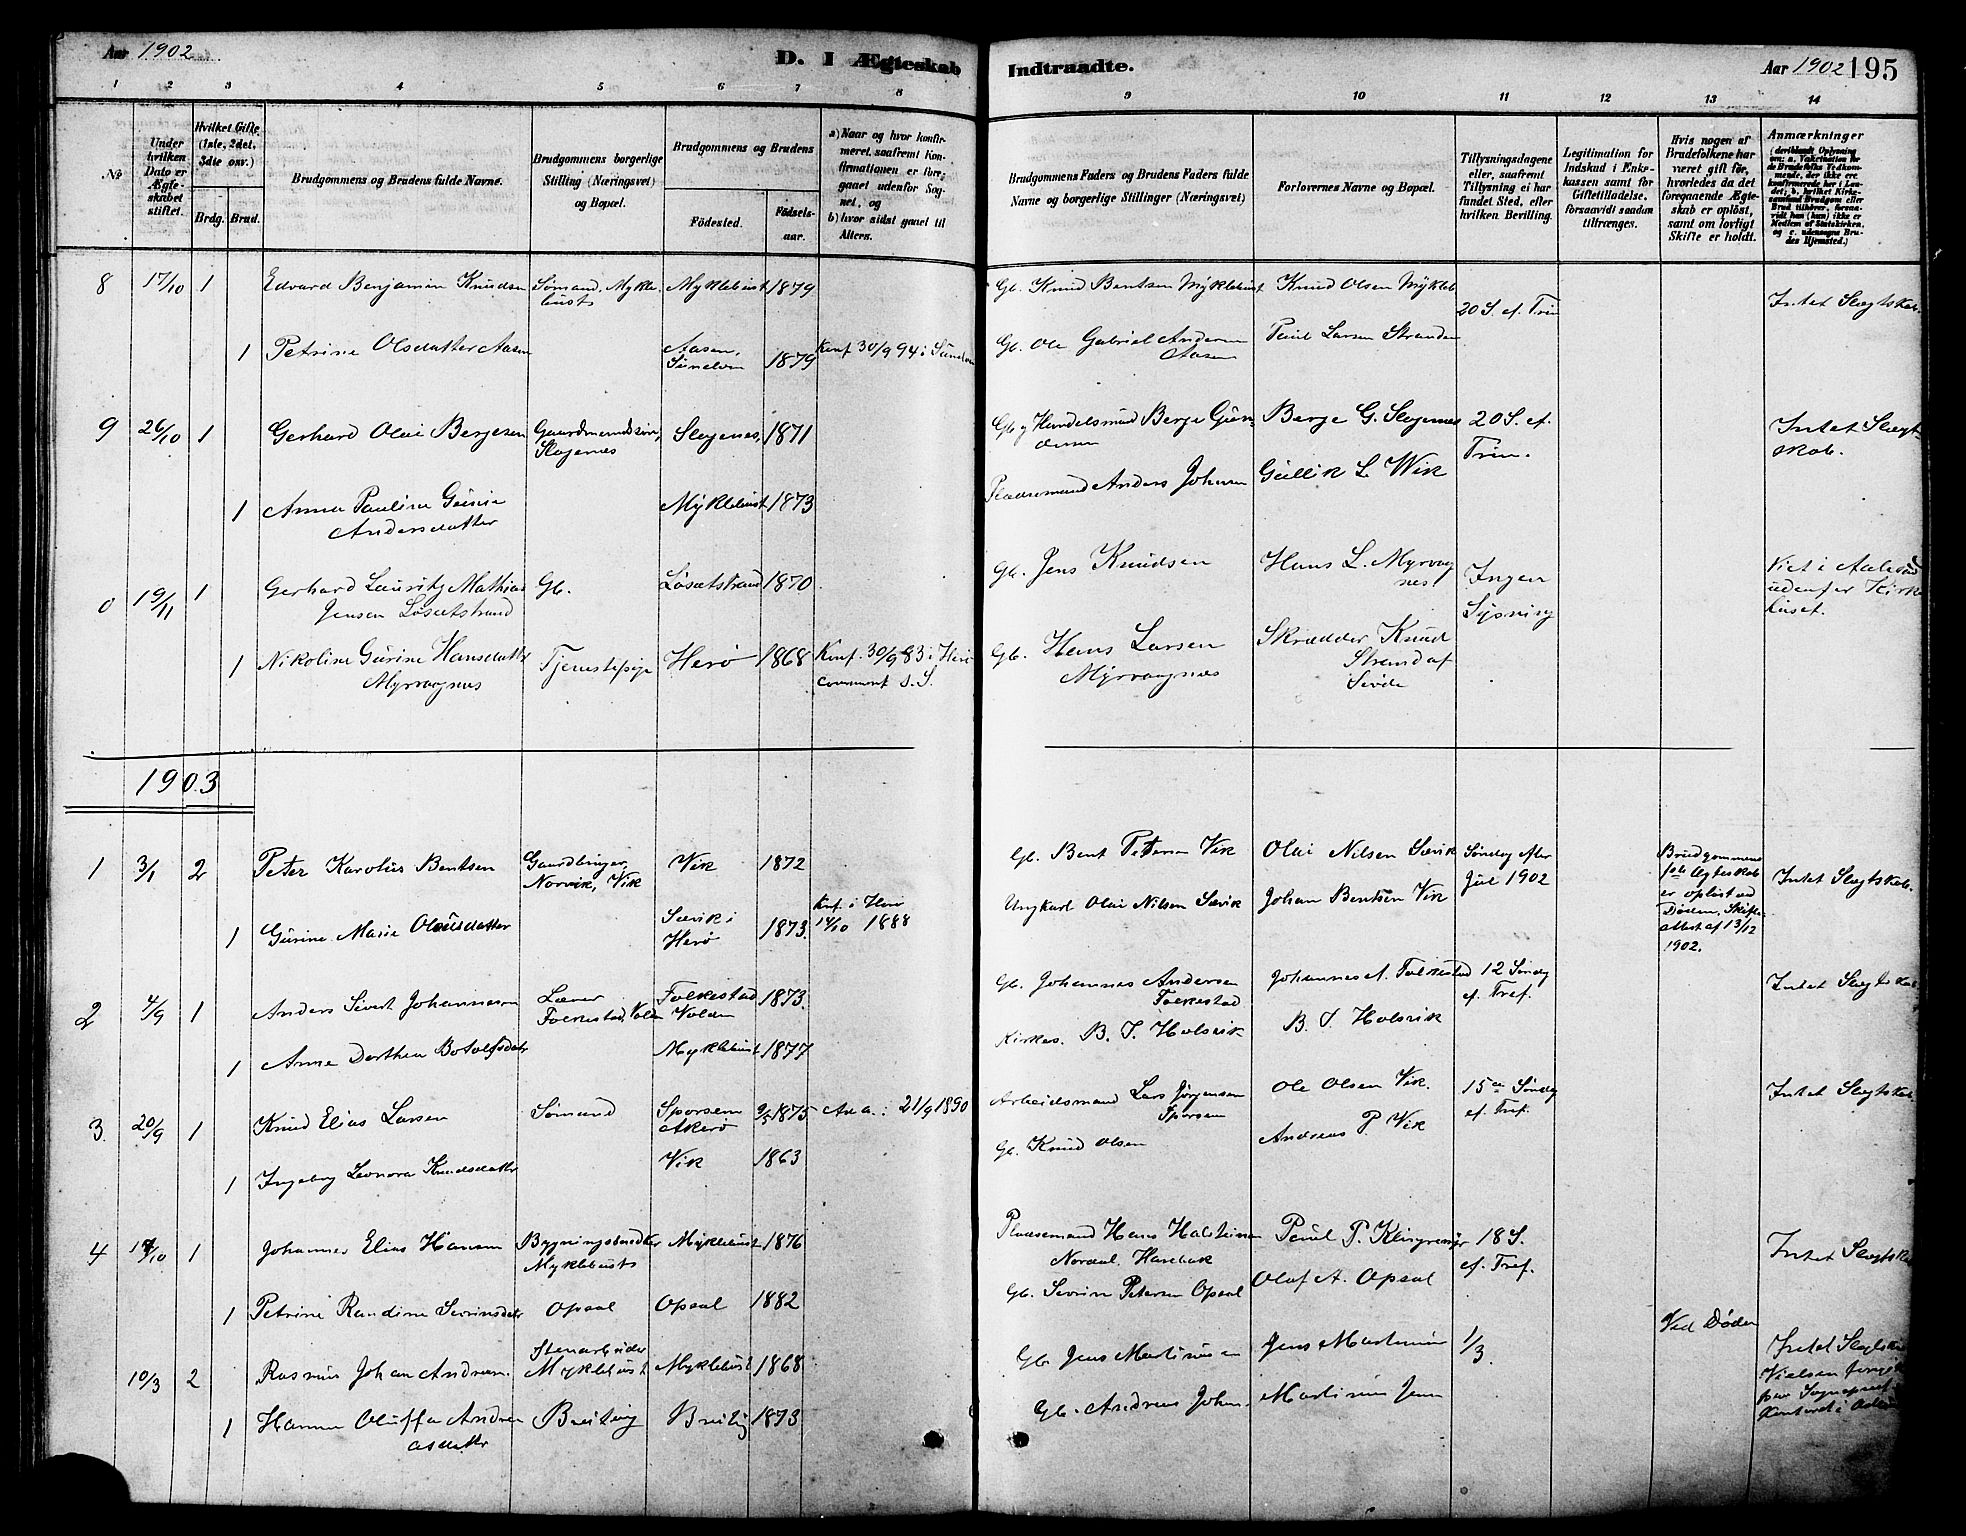 Aar 1902
D. I Ægteskab
Indtraadte.
Aar 1902 195
1 2 3 4 5 6 7 8 9 10 11 12 13 14
No
Under hvilken Dato er Ægteskabet stiftet.
Hvilket Gifte (1ste, 2det, 3die osv.)
Brdg. Brud.
Brudgommens og Brudens fulde Navne.
Brudgommens borgerlige Stilling (Næringsvei) og Bopæl.
Brudgommens og Brudens
Fødested.
Fødselsaar.
a) Naar og hvor konfirmeret, saafremt Konfirmationen er foregaaet udenfor Sognet, og
b) hvor sidst gaaet til Alters.
Brudgommens Faders og Brudens Faders fulde Navne og borgerlige Stillinger (Næringsvei)
Forlovernes Navne og Bopæl.
Tillysningsdagene eller, saafremt Tillysning ei har fundet Sted, efter hvilken Bevilling.
Legitimation for Indskud i Enkekassen samt for Giftetilladelse, forsaavidt saadan tiltrænges.
Hvis nogen af Brudefolkene har været gift før, hvorledes da det foregaaende Ægteskab er opløst, samt om lovligt Skifte er holdt.
Anmærkninger
8 17/10 1 Edvard Benjamin Knudsen Sømand, Myklebusts Myklebust 1879 Gb. Knud Bentsen Myklebust Knud Olsen Mykleb 20 S. ef. Trin Intet Slægtskab.
1 Petrine Olsdatter Aasen Aasen, Sunelven 1879 Konf 30/9 94 i Sunelven Gb. Ole Gabriel Andersen Aasen Paul Larsen Stranden
9 26/10 1 Gerhard Olai Bergesen Gaardmandssøn, Slagenæs Slagenes, 1871 Gb. og Handelsmand Berge Gunderson Berge G. Slagenes 20 S. ef. Trin. Intet Slægtskab.
1 Anna Pauline Gurine Andersdatter Myklebust 1873 Pladsemand Anders Johnsen Gullik L. Wik
0 19/11 1 Gerhard Lauritz Mathias Jensen Løsætstrand Gb. Løsætstrand 1870 Gb. Jens Knudsen Hans L. Myrvagnes Ingen Lysning Viet i Aalesund udenfor Kirkehuset.
1 Nikoline Gurine Hansdatter Myrvaagnes Tjenestepige Herø 1868 Konf. 30/9 83 i Herø Gb. Hans Larsen Myrvaagnæs Skrædder Knud Strand af Søvde
1903
1 3/1 2 Peter Karolus Bentsen Gaardbruger, Norvik, Vik Vik 1872 Gb. Bent Petersen Vik Olai Nilsen Sævik Søndag efter Jul 1902 Brudgommens 1ste Ægteskab er opløst ved Døden, Skifteattest af 13/12 1902. Intet Slægtskab.
1 Gurine Marie Olausdatter Sævik i Herø 1873. Knf. i Herø 14/10 1888 Ungkarl Olai Nilsen Sævik Johan Bentsen Vik
2 4/9 1 Anders Sivert Johannesen Lærer Folkestad, Volden Folkestad Volden 1873. Gb. Johannes Andersen Folkestad Johannes A. Folkestad 12 Søndg ef. Tref. Intet Slægtskab
1 Anne Dorthea Botolfsdatr Myklebust 1877 Kirkes. B. J. Holsvik B. J. Holsvik
3. 20/9 1 Knud Elias Larsen Sømand Sporsem Akerø 9/5 1875 21/9 1890 Arbeidsmand Lars Jørgensen Sporsem Ole Olsen Vik. 15de Søndg ef. Tref. Intet Slægtskab
1 Ingeborg Leonora Knudsdattr Vik 1863 Gb. Knud Olsen Andreas P. Vik
4 17/10 1 Johannes Elias Hansen Bygningssnedker Myklebusts Myklebust 1876 Pladsemand Hans Halsteinsen Nordal, Hareidak Paul P. Klingremyr 18 S. ef. Tref. Intet Slægtskab
1 Petrine Randine Severinsdatr Opsal Opsal 1882 Gb. Severin Petersen Opsal Olaf A. Opsal
10/3 2 Rasmus Johan Andreas Stenarbeider Myklebust Myklebust 1868 Gb. Jens Martinusen Jens Martinus 1/3. Ved Døden Intet Slægtskab
1 Hanna Oluffa Andreasdattr Breiteig Breiteig 1873 Gb. Andreas Johan Martinus Jen